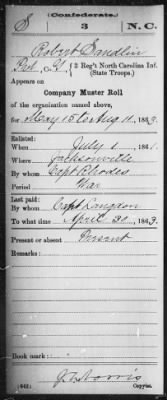 Confederate.
S 3 N.C.
Robert Sandlin
Pvt, { 3 Reg't North Carolina Inf.
(State Troops.)
Appears on
Company Muster Roll
of the organization named above,
for May 15 to Aug 11, 1863.
Enlisted:
When July 1, 1861.
Where Jacksonville
By whom Capt Rhodes
Period War
Last paid:
By whom Capt Langdon
To what time April 30, 1863.
Present or absent Present
Remarks:
Book mark:
(642) Copyist.